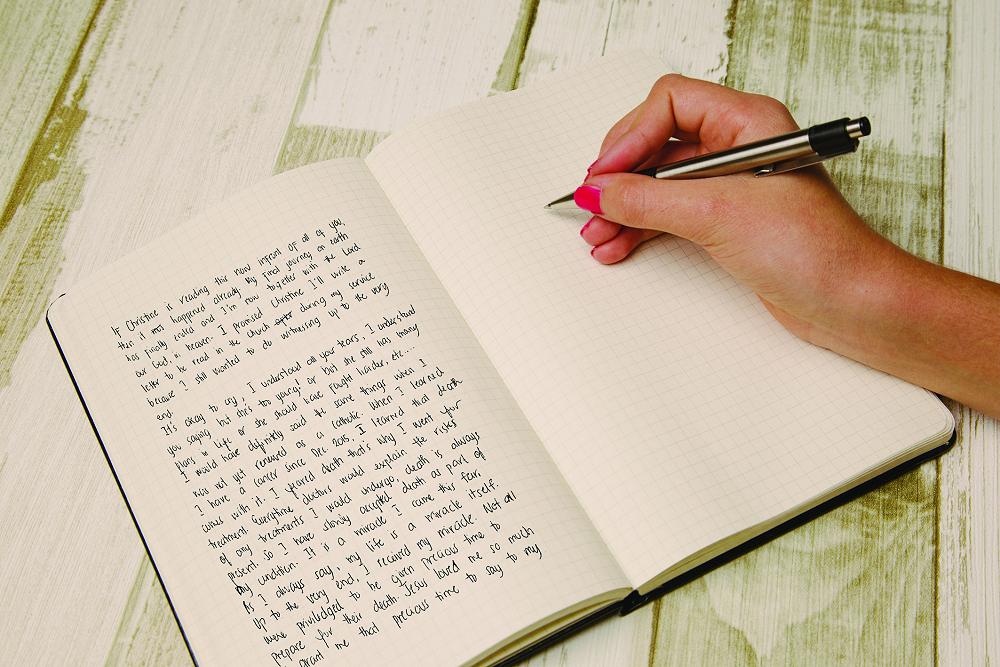 If Christine is reading this now infront of all of you,
then it has happened already. My final journey on earth
has finally ended and I'm now together with the Lord
our God, in heaven. I promised Christine I'll write a
letter to be read in the church after during my service
because I still wanted to do witnessing up to the very
end.
It's okay to cry, I understand all your tears, I understand
you saying but she's too young! or but she still has many
plans in life or she should have fought harder, etc...
I would have definitely said the same things when I
was not yet renewed as a catholic. When I learned
I have a cancer since Dec 2015, I learned that death
comes with it. I feared death that's why I went for
treatment. Everytime doctors would explain the risks
of any treatments I would undergo, death is always
present. So I have slowly accepted death as part of
my condition. It is a miracle I came this far.
As I always say, my life is a miracle itself.
Up to the very end, I received my miracle. Not all
were priviledged to be given precious time to
prepare for their death. Jesus loved me so much
grant me that precious time to say to my